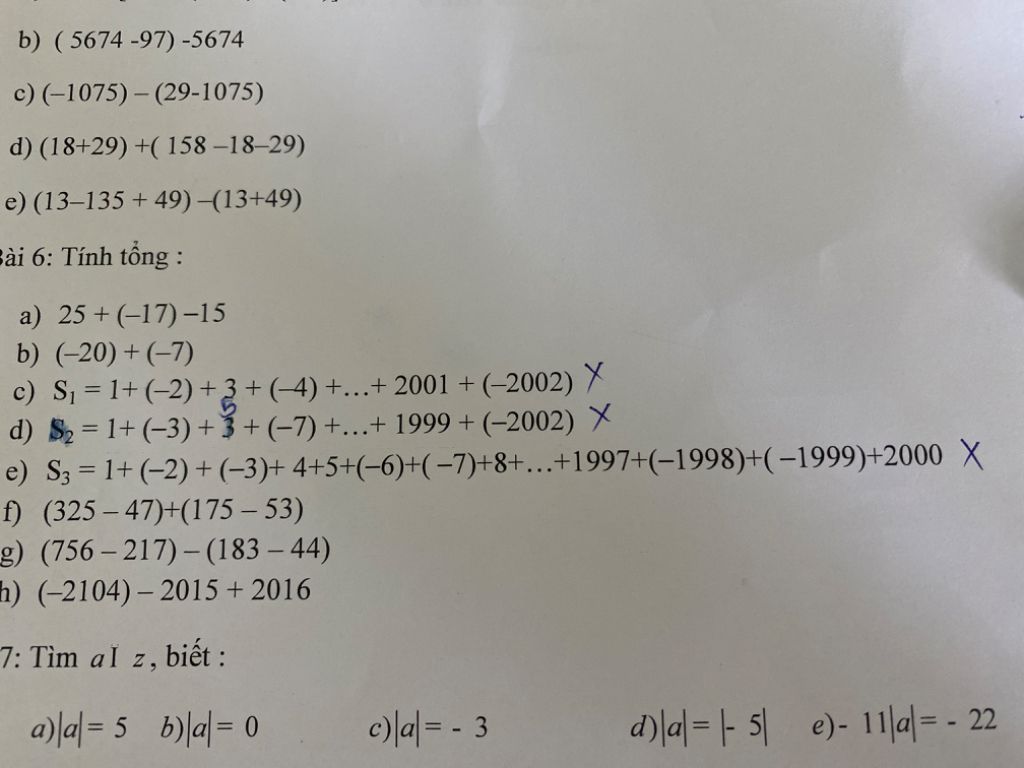 b) ( 5674 -97) -5674
c) (–1075) – (29-1075)
d) (18+29) +( 158 –18–29)
e) (13–135 + 49) –(13+49)
Bài 6: Tính tổng :
a) 25 + (–17) –15
b) (–20) + (–7)
c) S₁ = 1+ (–2) + 3 + (–4) +…+ 2001 + (–2002) X
5
d) S₂ = 1+ (–3) + 3 + (–7) +…+ 1999 + (–2002) X
e) S₃ = 1+ (–2) + (–3)+ 4+5+(–6)+( –7)+8+…+1997+(–1998)+( –1999)+2000 X
f) (325 – 47)+(175 – 53)
g) (756 – 217) – (183 – 44)
h) (–2104) – 2015 + 2016
7: Tìm a I z , biết :
a)|a|= 5 b)|a|= 0 c)|a|= - 3 d)|a|= |- 5| e)- 11|a|= - 22